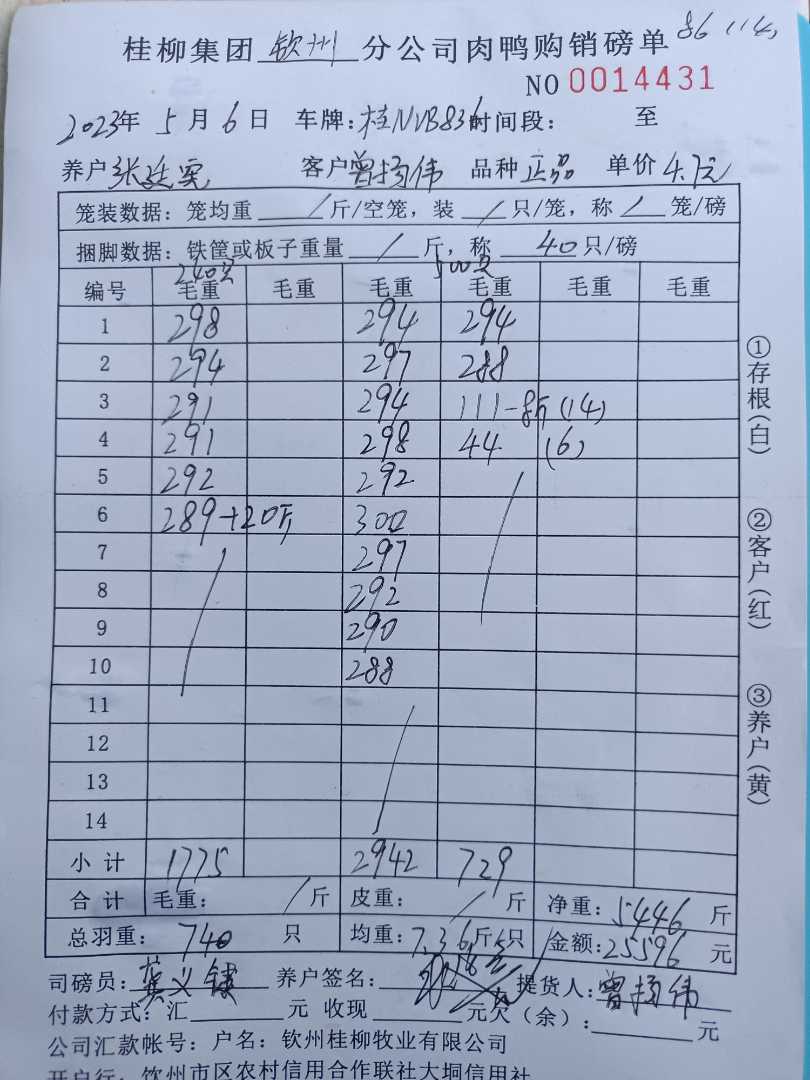 86 114
桂柳集团 钦州 分公司肉鸭购销磅单
NO 0014431
2023年 5月 6日 车牌:桂NVB836 时间段: 至
养户 张廷实 客户 曾扬伟 品种 正品 单价 4.7元
笼装数据:笼均重 / 斤/空笼,装 / 只/笼,称 / 笼/磅
捆脚数据:铁筐或板子重量 / 斤,称 40只/磅
240只 500只
编号 毛重 毛重 毛重 毛重 毛重 毛重
1 298 294 294
2 294 297 288
3 291 294 111-8斤(14)
4 291 298 44 (6)
5 292 292
6 289+20斤 300
7 297
8 292
9 290
10 288
11
12
13
14
小计 1775 2942 729
合计 毛重: / 斤 皮重: / 斤 净重:5446 斤
总羽重: 740 只 均重:7.36斤/只 金额:25596 元
司磅员: 养户签名: 提货人:曾扬伟
付款方式:汇 元 收现 元欠(余): 元
公司汇款帐号:户名:钦州桂柳牧业有限公司
开户行:钦州市区农村信用合作联社大垌信用社
①存根(白)
②客户(红)
③养户(黄)